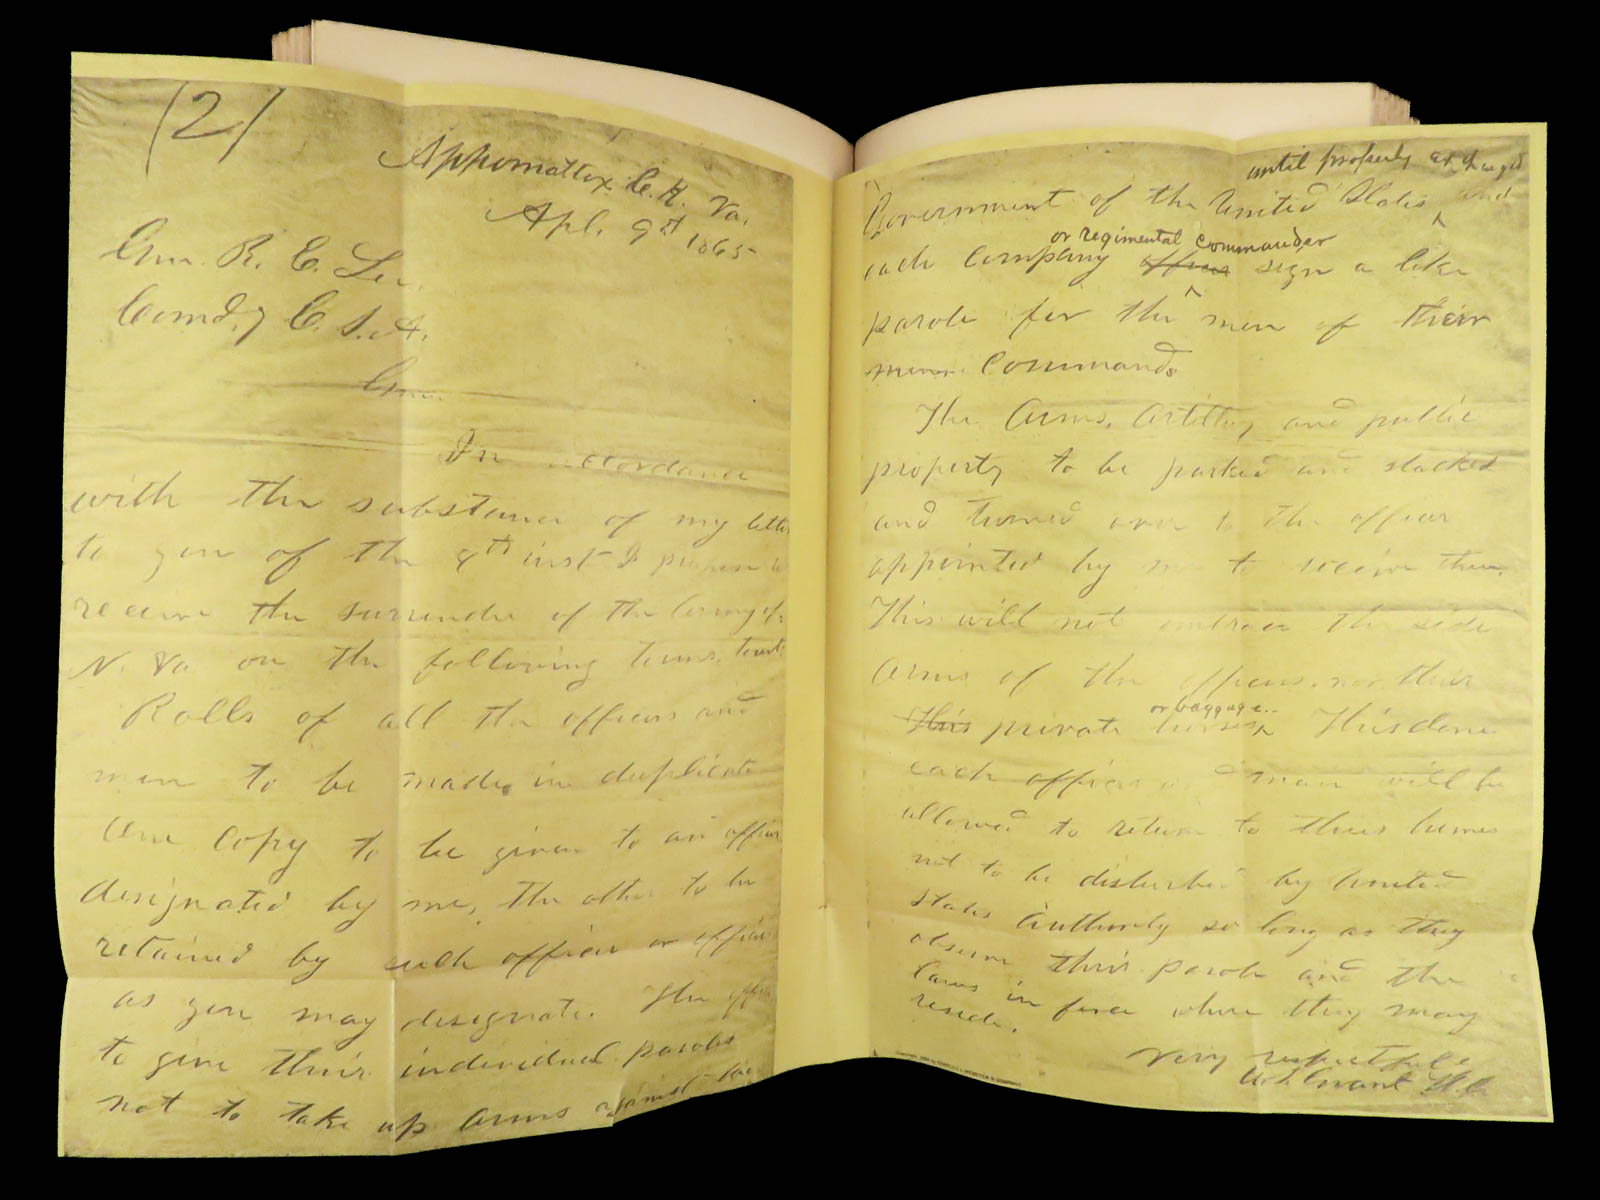 (2)
Appomattox C. H. Va.
Apl. 9th 1865
Gen. R. E. Lee,
Comd.g C. S. A.
Gen.
In accordance
with the substance of my letter
to you of the 8th inst I propose to
receive the surrender of the Army of
N. Va on the following terms, towit
Rolls of all the officers and
men to be made in duplicate
One copy to be given to an officer
designated by me, the other to be
retained by such officer or officers
as you may designate. The officers
to give their individual paroles
not to take up arms against the
until properly exchanged
Government of the United States and
or regimental commander
each company officer sign a like
parole for the men of their
commands
The Arms, Artillery and public
property to be parked and stacked
and turned over to the officer
appointed by me to receive them.
This will not embrace the side
Arms of the officers, nor their
or baggage.
This private horses This done
each officer and man will be
allowed to return to their homes
not to be disturbed by United
States Authority so long as they
observe their parole and the
laws in force where they may
reside.
Very respectfully
U. S. Grant Lt. Gl
Copyright, 1885 by CHARLES L. WEBSTER & COMPANY